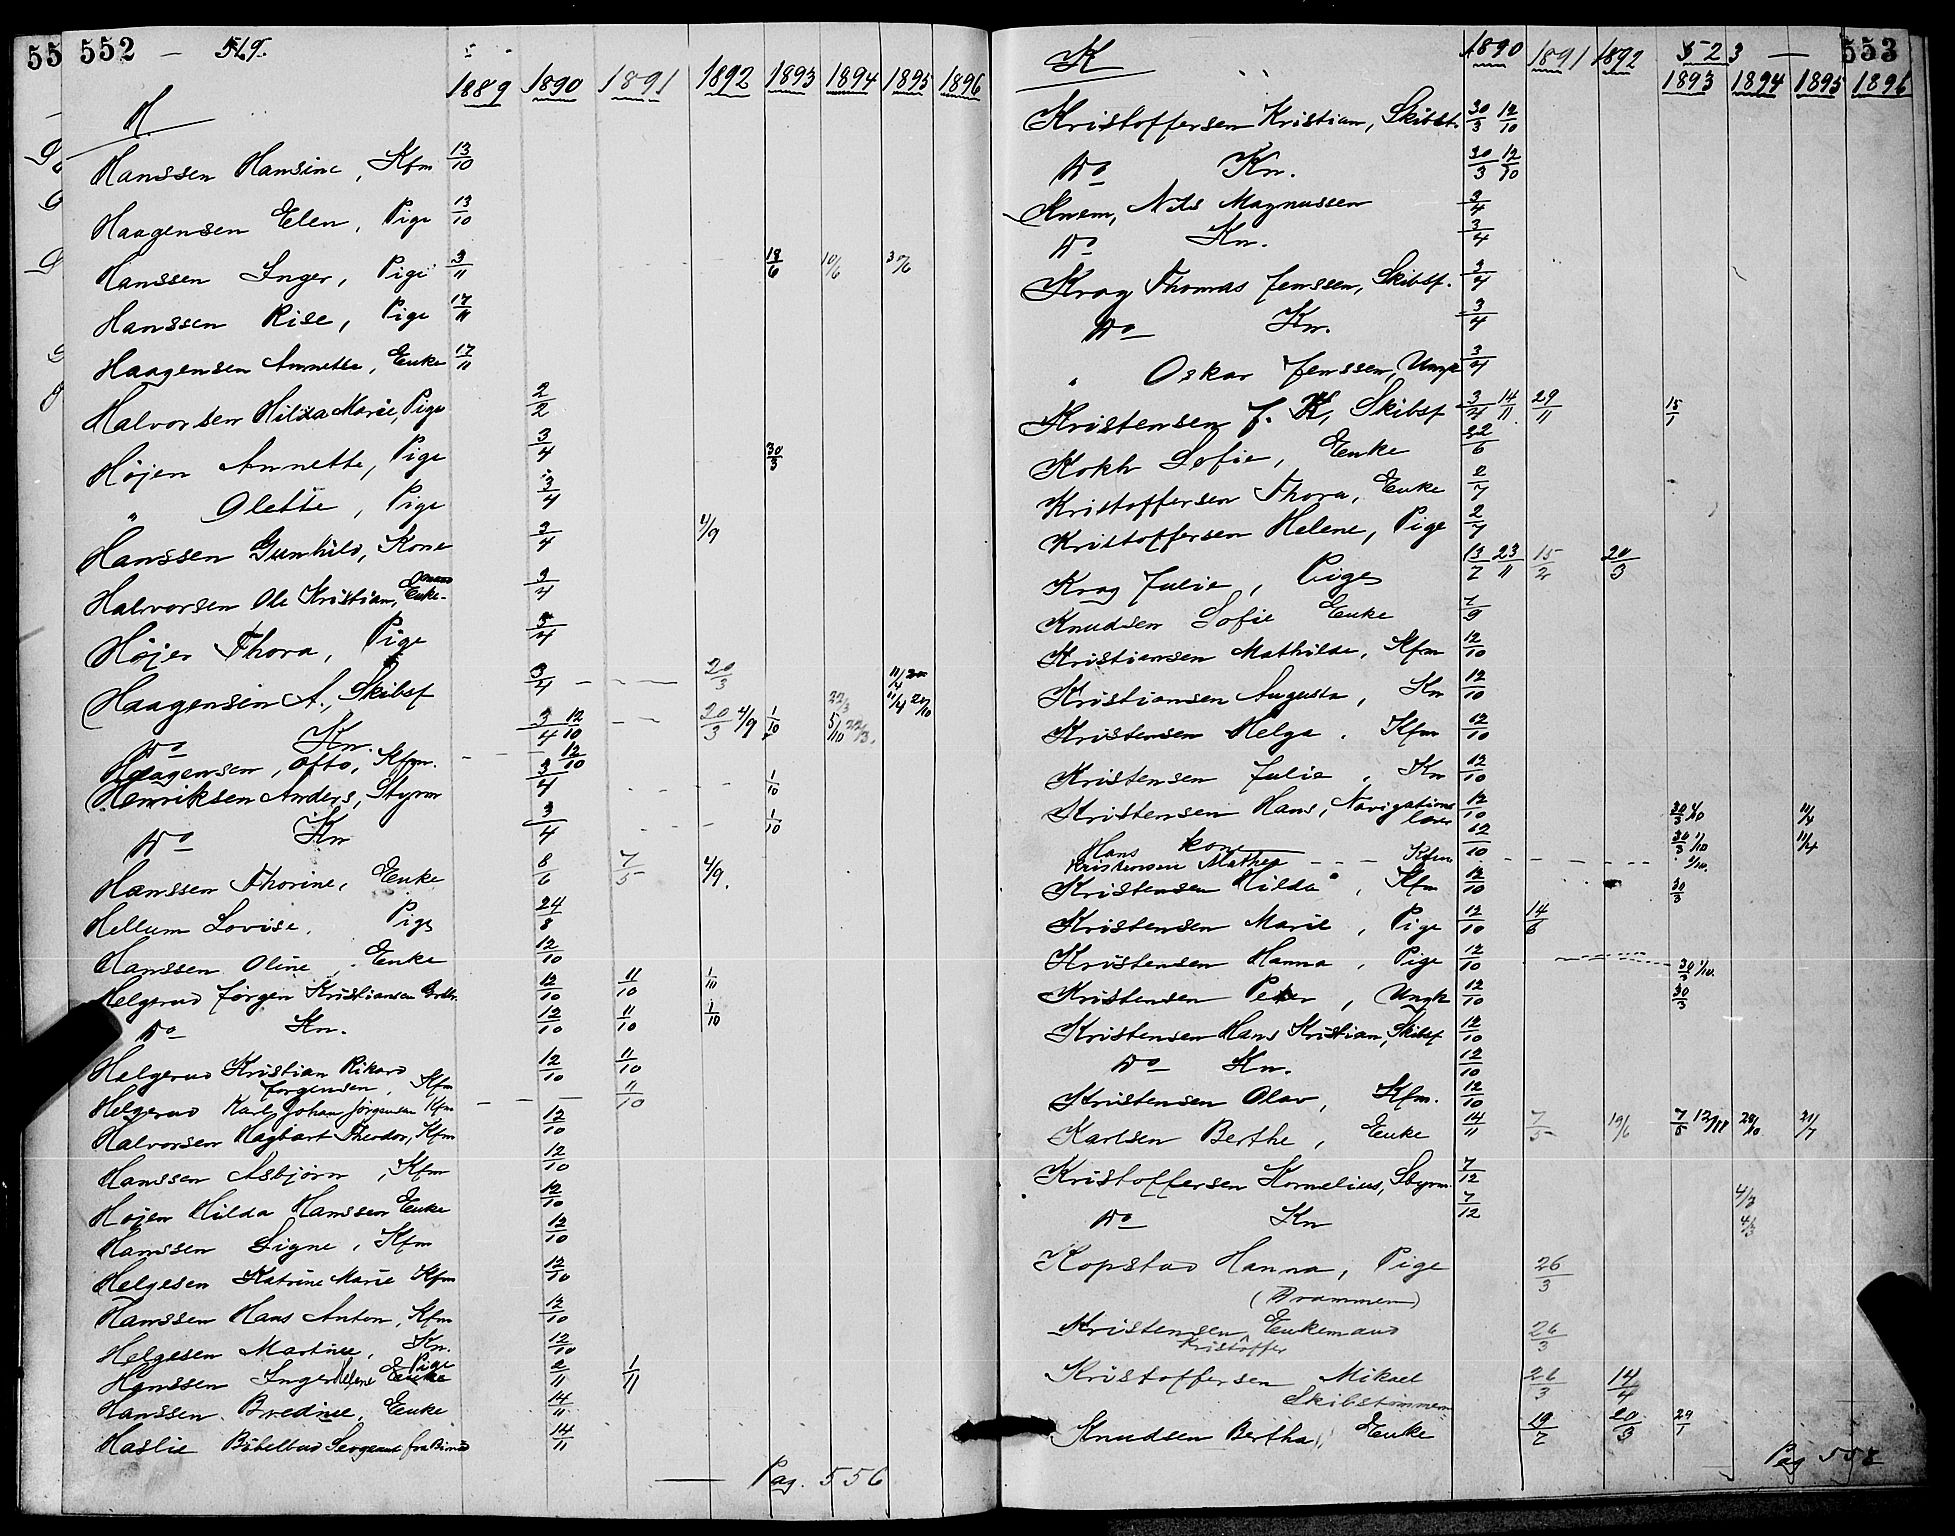 55 552 — 519.
1889 1890 1891 1892 1893 1894 1895 1896
H.
Hanssen Hansine, Kfm 13/10
Haagensen Elen, Pige 13/10
Hanssen Inger, Pige 3/11 18/6 10/6 30/6
Hanssen Rise, Pige 17/11
Haagensen Annette, Enke 17/11
Halvorsen Hilda Marie, Pige 2/2
Højen Annette, Pige 3/4 30/3
" Olette, Pige 3/4
Hanssen Gunhild, Kone 3/4 4/9
Halvorsen Ole Kristian, Enkemand 3/4
Højer Thora, Pige 3/4
Haagensen A., Skibsf 3/4 — — — 20/3 11/4
Do Kn. 3/4 12/10 — — 20/3 4/9 1/10 5/10 22/3 11/4 20/10
Haagensen, Otto, Kfm. — — 12/10
Henriksen Anders, Styrm 3/4 1/10
Do Kn 3/4 1/10
Hanssen Thorine, Enke 8/6 7/5 4/9.
Hellum Lovise, Pige 24/8
Hanssen Oline, Enke 12/10
Helgerud Jørgen Kristiansen 12/10 11/10 1/10
Do Kn. 12/10 11/10 1/10
Helgerud Kristian Rikard 12/10 11/10
Jørgensen, Kfm
Helgerud Karl Johan Jørgensen Kfm — — — 11/10
Halvorsen Hagbart Theodor, Kfm 12/10
Hanssen Asbjørn, Kfm 12/10
Højen Hilda Hanssen Enke 12/10
Hanssen Signe, Kfm 12/10
Helgesen Katrine Marie Kfm 12/10
Hanssen Hans Anton, Kfm 12/10
Helgesen Martine, Kn. 12/10
Hanssen Inger Helene Pige 2/11 1/11
Hanssen Bredine, Enke 14/11
Haslie Sergeant fra 14/11
— Pag. 556
K 523 — 553
1890 1891 1892 1893 1894 1895 1896
Kristoffersen Kristian, Skibst. 30/3 12/10
Do Kn. 30/3 12/10
Knem, Nils Magnussen 3/4
Do Kn. 3/4
Krag Thomas Jenssen, Skibsf. 3/4
Do Kn. 3/4
" Oskar Jenssen, Ungk 3/4
Kristensen J. H, Skibsf 3/4 14/11 29/11 15/1
Kokh Sofie, Enke 22/6
Kristoffersen Thora, Enke 2/7
Kristoffersen Helene, Pige 2/7
Krag Julie, Pige 13/7 23/11 15/2 20/3
Knudsen Sofie Enke 7/9
Kristiansen Mathilde, Kfm 12/10
Kristiansen Augusta, Kn 12/10
Kristensen Helga, Kfm 12/10
Kristensen Julie, Kn 12/10
Kristensen Hans, Navigations 12/10 30/3 1/10 11/4
lærer
Hans kone 12/10 30/3 1/10 11/4
Kristensen Mathea — — — Kfm 1/10.
Kristensen Hilda, Kfm 12/10 30/3
Kristensen Marie, Pige 12/10 14/6
Kristensen Hanna, Pige 12/10 30/3 1/10.
Kristensen Peter, Ungk 12/10 30/3
Kristensen Hans Kristian, Skibsf 12/10
Do Kn. 12/10
Kristensen Olav, Kfm. 12/10
Karlsen Berthe, Enke 14/11 7/5 19/6 7/5 12/11 29/10 21/7
Kristoffersen Kornelius, Styrm. 7/12 4/3
Do Kn 7/12 4/3
Kopstad Hanna, Pige 26/3
(Drammen)
Kristensen, Enkemand 26/3
Kristoffer
Kristoffersen Mikael 26/3 14/4
Skibstømmerm
Knudsen Bertha, Enke 19/2 20/3 29/1
Pag 558